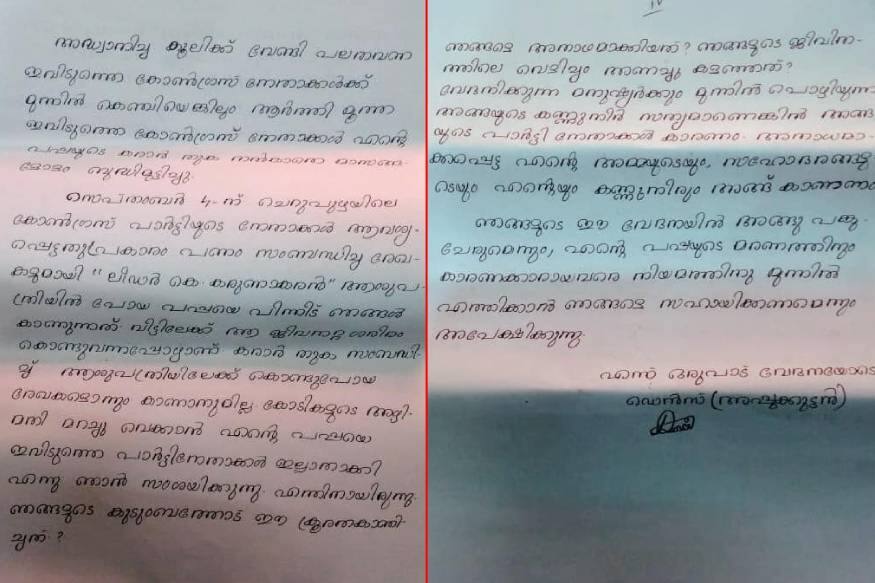 അദ്ധ്വാനിച്ച കൂലിക്ക് വേണ്ടി പലതവണ
ഇവിടുത്തെ കോൺഗ്രസ് നേതാക്കൾക്ക്
മുന്നിൽ കെഞ്ചിയെങ്കിലും ആർത്തി മൂത്ത
ഇവിടുത്തെ കോൺഗ്രസ് നേതാക്കൾ എന്റെ
പപ്പയുടെ കരാർ തുക നൽകാതെ മാസങ്ങ-
ളോളം ബുദ്ധിമുട്ടിച്ചു.
സെപ്തംബർ 4-ന് ചെറുപുഴയിലെ
കോൺഗ്രസ് പാർട്ടിയുടെ നേതാക്കൾ ആവശ്യ-
പ്പെട്ടതുപ്രകാരം പണം സംബന്ധിച്ച രേഖ-
കളുമായി "ലീഡർ കെ. കരുണാകരൻ" ആശുപ-
ത്രിയിൽ പോയ പപ്പയെ പിന്നീട് ഞങ്ങൾ
കാണുന്നത് വീട്ടിലേക്ക് ആ ജീവനറ്റ ശരീരം
കൊണ്ടുവന്നപ്പോഴാണ് കരാർ തുക സംബന്ധി-
ച്ച് ആശുപത്രിയിലേക്ക് കൊണ്ടുപോയ
രേഖകളൊന്നും കാണാനുമില്ല. കോടികളുടെ അഴി-
മതി മറച്ചു വെക്കാൻ എന്റെ പപ്പയെ
ഇവിടുത്തെ പാർട്ടിനേതാക്കൾ ഇല്ലാതാക്കി
എന്നു ഞാൻ സംശയിക്കുന്നു. എന്തിനായിരുന്നു.
ഞങ്ങളുടെ കുടുംബത്തോട് ഈ ക്രൂരതകാണി-
ച്ചത് ?
ഞങ്ങളെ അനാഥമാക്കിയത് ? ഞങ്ങളുടെ ജീവിത-
ത്തിലെ വെളിച്ചം അണച്ചു കളഞ്ഞത് ?
വേദനിക്കുന്ന മനുഷ്യർക്കും മുന്നിൽ പൊഴിയുന്ന
അങ്ങയുടെ കണ്ണുനീർ സത്യമാണെങ്കിൽ അങ്ങ
യുടെ പാർട്ടി നേതാക്കൾ കാരണം അനാഥമാ-
ക്കപ്പെട്ട എന്റെ അമ്മയുടെയും, സഹോദരങ്ങളു
ടെയും എന്റെയും കണ്ണുനീരും അങ്ങ് കാണണം
ഞങ്ങളുടെ ഈ വേദനയിൽ അങ്ങു പങ്കു
ചേരുമെന്നും, എന്റെ പപ്പയുടെ മരണത്തിനും
കാരണക്കാരായവരെ നിയമത്തിനു മുന്നിൽ
എത്തിക്കാൻ ഞങ്ങളെ സഹായിക്കണമെന്നും
അപേക്ഷിക്കുന്നു.
എന്ന് ഒരുപാട് വേദനയോടെ
ഡെൻസ് (അപ്പുക്കുട്ടൻ)